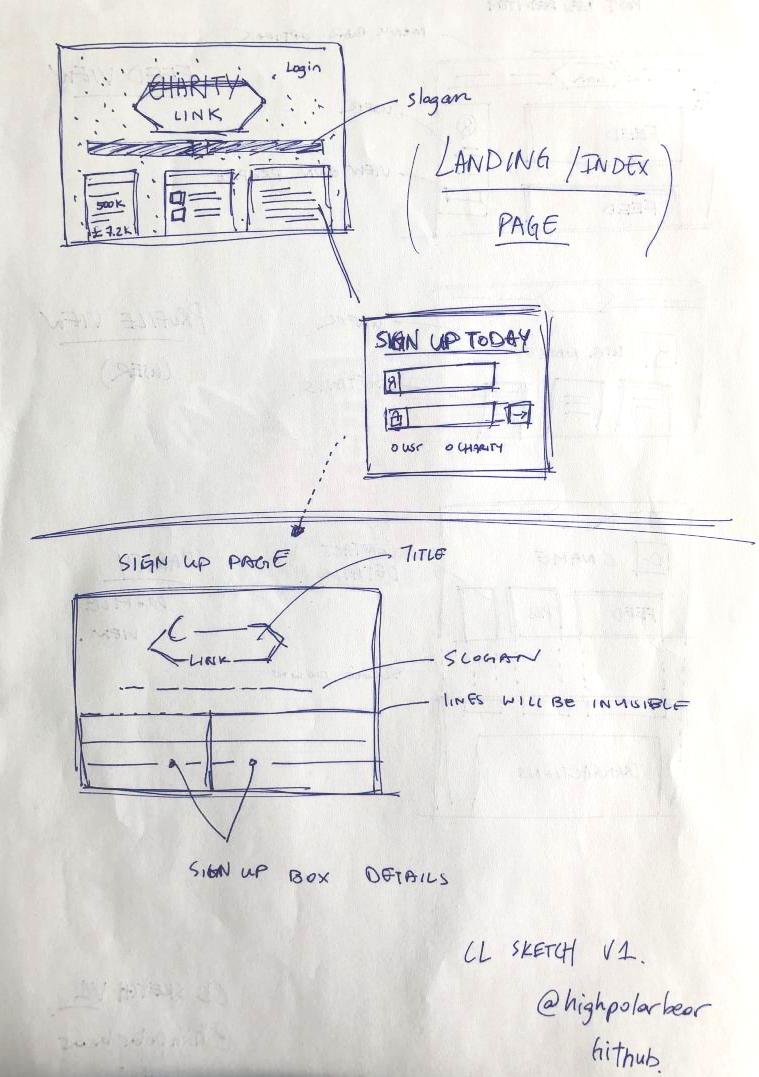 Login
CHARITY
LINK
slogan
500K
£ 7.2K
(LANDING / INDEX
PAGE)
SIGN UP TODAY
CHARITY
SIGN UP PAGE
TITLE
C
LINK
SLOGAN
LINES WILL BE INVISIBLE
SIGN UP BOX DETAILS
CL SKETCH V1.
@highpolarbear
Github.